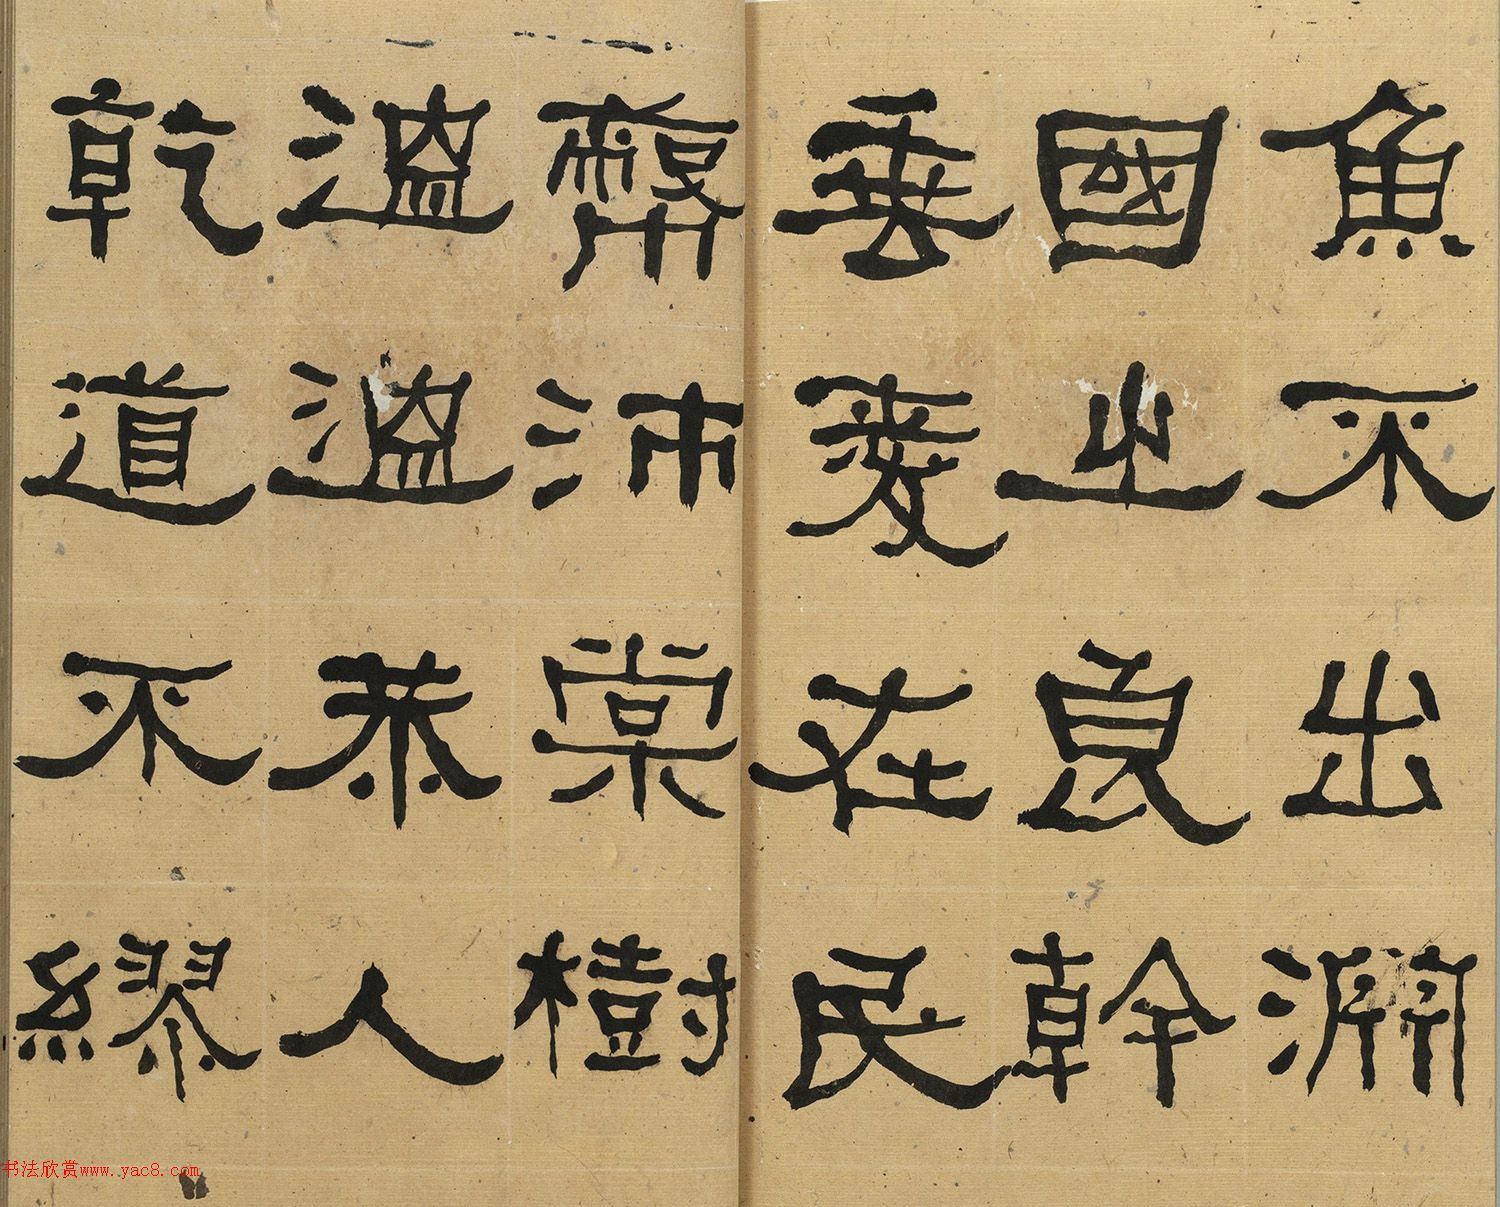 魚不出淵
國之良幹
垂愛在民
蔽沛棠樹
溫溫恭人
乾道不繆
书法欣赏www.yac8.com